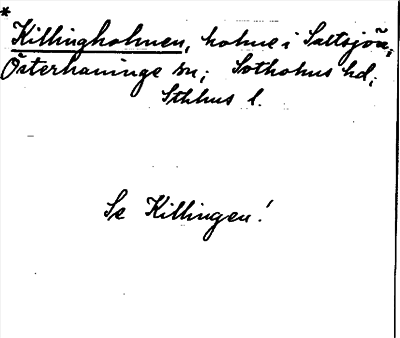 *
Killingholmen, holme i Saltsjön,
Österhaninge sn; Sotholms hd;
Sthlms l.
Se Killingen!